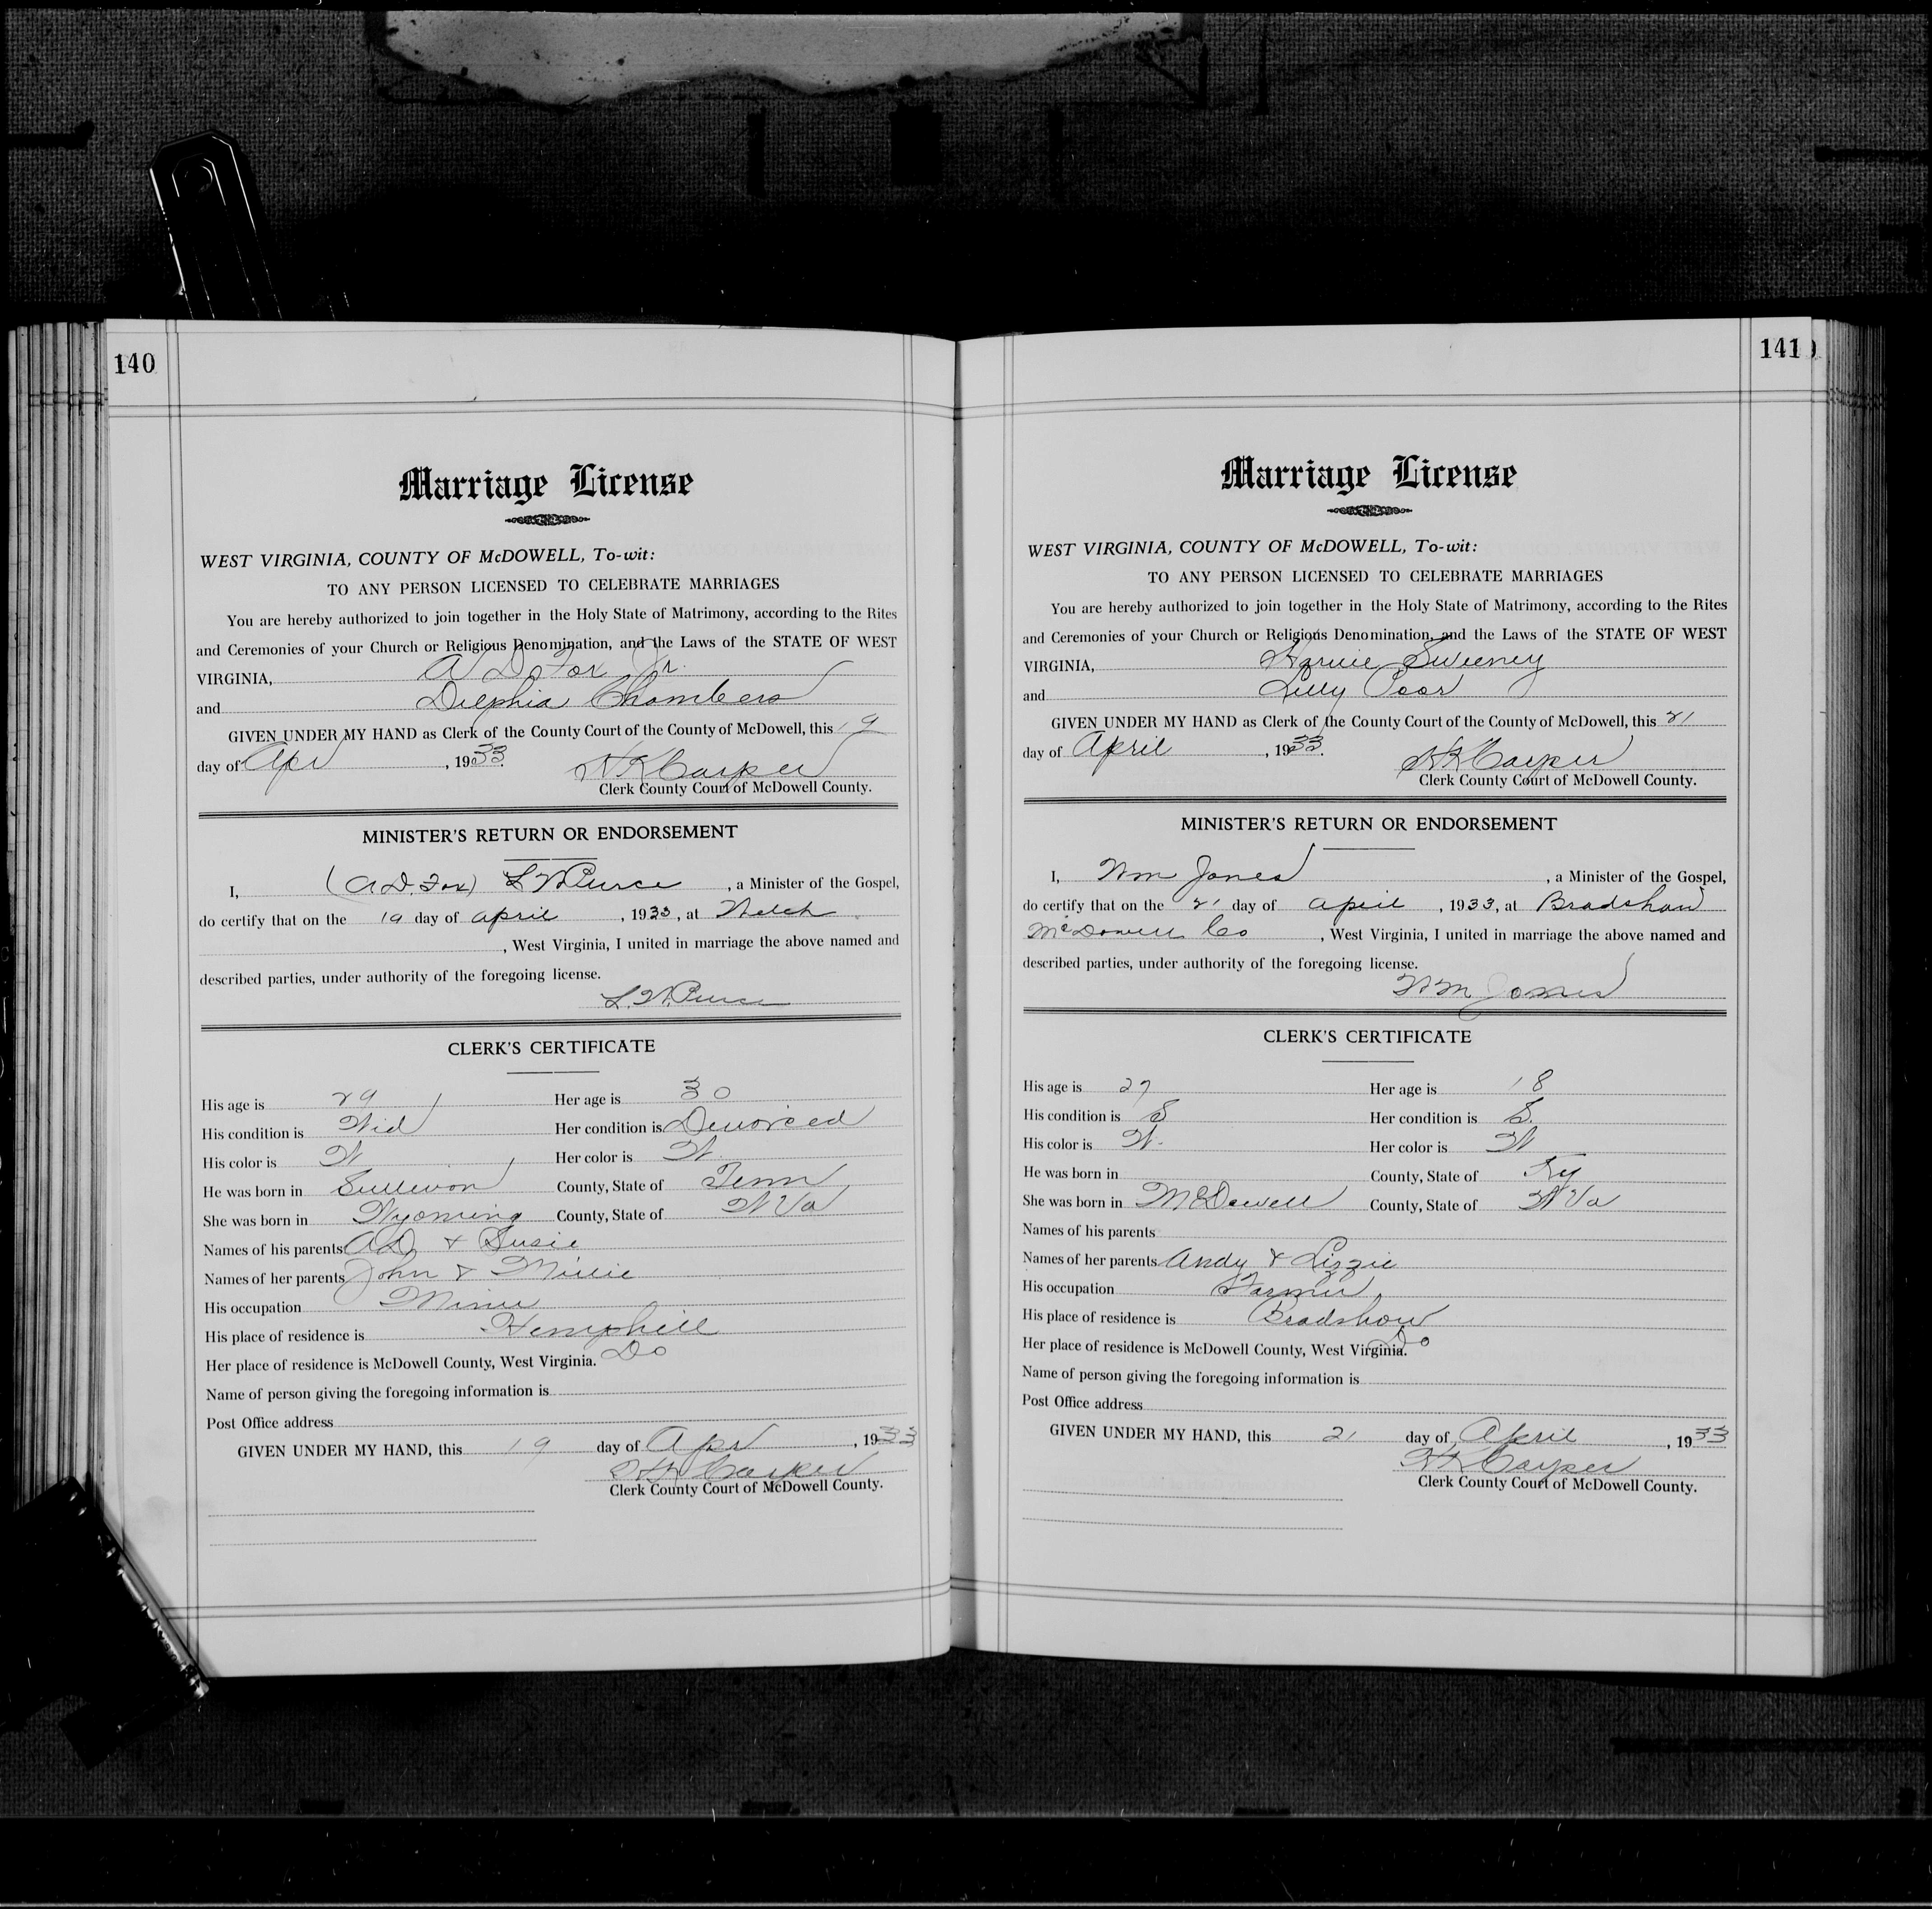 140
Marriage License
WEST VIRGINIA, COUNTY OF McDOWELL, To-wit:
TO ANY PERSON LICENSED TO CELEBRATE MARRIAGES
You are hereby authorized to join together in the Holy State of Matrimony, according to the Rites
and Ceremonies of your Church or Religious Denomination, and the Laws of the STATE OF WEST
VIRGINIA, A D Fox Jr.
and Delphia Chambers
GIVEN UNDER MY HAND as Clerk of the County Court of the County of McDowell, this 19
day of Apr, 1933.
Carper
Clerk County Court of McDowell County.
MINISTER'S RETURN OR ENDORSEMENT
I, (A.D. Fox) L W Pierce, a Minister of the Gospel,
do certify that on the 19 day of April, 1933, at Welch
, West Virginia, I united in marriage the above named and
described parties, under authority of the foregoing license.
L. W. Pierce
CLERK'S CERTIFICATE
His age is 29 Her age is 30
His condition is Wid Her condition is Devorced
His color is W Her color is W.
He was born in Sullivan County, State of Tenn
She was born in Wyoming County, State of W Va
Names of his parents A D & Susie
Names of her parents John & Millie
His occupation Miner
His place of residence is Hemphill
Her place of residence is McDowell County, West Virginia. Do
Name of person giving the foregoing information is
Post Office address
GIVEN UNDER MY HAND, this 19 day of Apr, 1933
Carper
Clerk County Court of McDowell County.
141
Marriage License
WEST VIRGINIA, COUNTY OF McDOWELL, To-wit:
TO ANY PERSON LICENSED TO CELEBRATE MARRIAGES
You are hereby authorized to join together in the Holy State of Matrimony, according to the Rites
and Ceremonies of your Church or Religious Denomination, and the Laws of the STATE OF WEST
VIRGINIA, Harvie Sweeney
and Lilly Poor
GIVEN UNDER MY HAND as Clerk of the County Court of the County of McDowell, this 21
day of April, 1933.
Carper
Clerk County Court of McDowell County.
MINISTER'S RETURN OR ENDORSEMENT
I, Wm Jones, a Minister of the Gospel,
do certify that on the 21 day of April, 1933, at Bradshaw
McDowell Co, West Virginia, I united in marriage the above named and
described parties, under authority of the foregoing license.
Wm Jones
CLERK'S CERTIFICATE
His age is 27 Her age is 18
His condition is S Her condition is S.
His color is W. Her color is W
He was born in County, State of Ky
She was born in McDowell County, State of W Va
Names of his parents
Names of her parents Andy & Lizzie
His occupation Farmer
His place of residence is Bradshaw
Her place of residence is McDowell County, West Virginia. Do
Name of person giving the foregoing information is
Post Office address
GIVEN UNDER MY HAND, this 21 day of April, 1933
Carper
Clerk County Court of McDowell County.